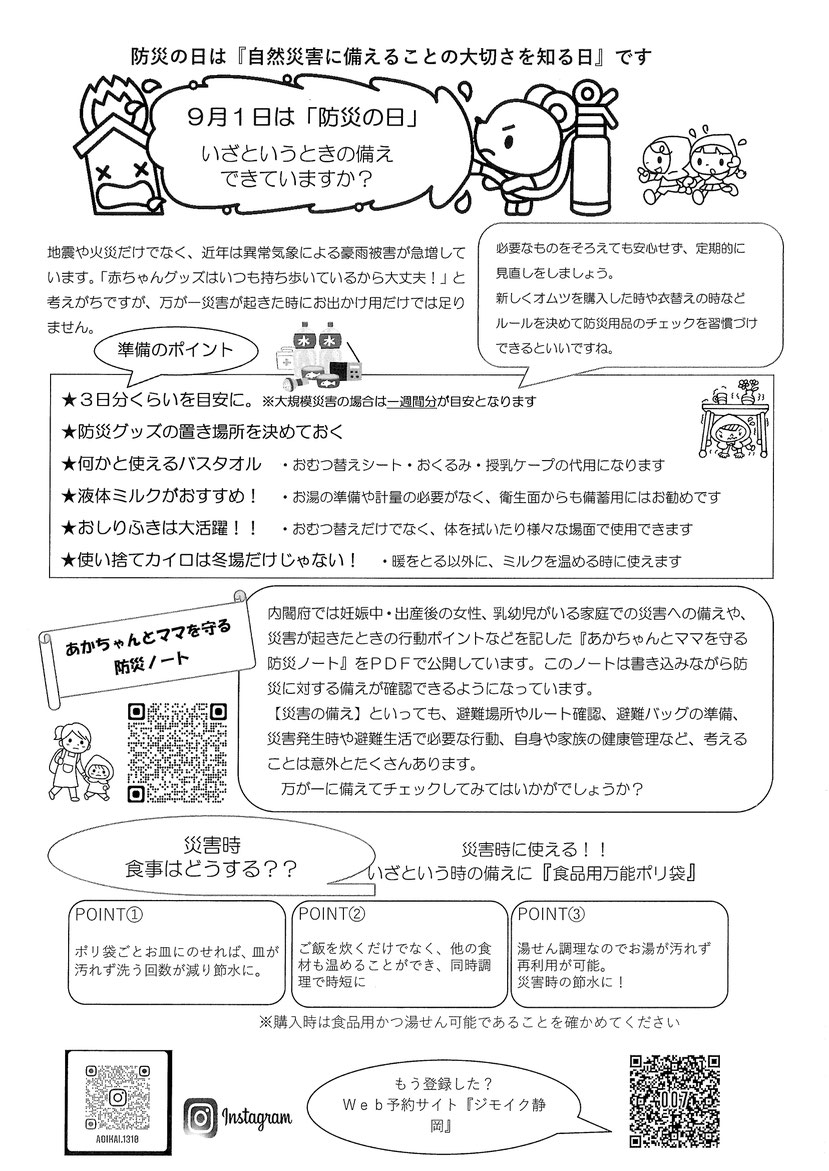 防災の日は『自然災害に備えることの大切さを知る日』です
９月１日は「防災の日」
いざというときの備え
できていますか？
地震や火災だけでなく、近年は異常気象による豪雨被害が急増して
います。「赤ちゃんグッズはいつも持ち歩いているから大丈夫！」と
考えがちですが、万が一災害が起きた時にお出かけ用だけでは足り
ません。
必要なものをそろえても安心せず、定期的に
見直しをしましょう。
新しくオムツを購入した時や衣替えの時など
ルールを決めて防災用品のチェックを習慣づけ
できるといいですね。
準備のポイント
水 水
★３日分くらいを目安に。※大規模災害の場合は一週間分が目安となります
★防災グッズの置き場所を決めておく
★何かと使えるバスタオル ・おむつ替えシート・おくるみ・授乳ケープの代用になります
★液体ミルクがおすすめ！ ・お湯の準備や計量の必要がなく、衛生面からも備蓄用にはお勧めです
★おしりふきは大活躍！！ ・おむつ替えだけでなく、体を拭いたり様々な場面で使用できます
★使い捨てカイロは冬場だけじゃない！ ・暖をとる以外に、ミルクを温める時に使えます
あかちゃんとママを守る
防災ノート
内閣府では妊娠中・出産後の女性、乳幼児がいる家庭での災害への備えや、
災害が起きたときの行動ポイントなどを記した『あかちゃんとママを守る
防災ノート』をＰＤＦで公開しています。このノートは書き込みながら防
災に対する備えが確認できるようになっています。
【災害の備え】といっても、避難場所やルート確認、避難バッグの準備、
災害発生時や避難生活で必要な行動、自身や家族の健康管理など、考える
ことは意外とたくさんあります。
万が一に備えてチェックしてみてはいかがでしょうか？
災害時
食事はどうする？？
災害時に使える！！
いざという時の備えに『食品用万能ポリ袋』
POINT①
ポリ袋ごとお皿にのせれば、皿が
汚れず洗う回数が減り節水に。
POINT②
ご飯を炊くだけでなく、他の食
材も温めることができ、同時調
理で時短に
POINT③
湯せん調理なのでお湯が汚れず
再利用が可能。
災害時の節水に！
※購入時は食品用かつ湯せん可能であることを確かめてください
AOIHAI.1310
Instagram
もう登録した？
Ｗｅｂ予約サイト『ジモイク静
岡』
007